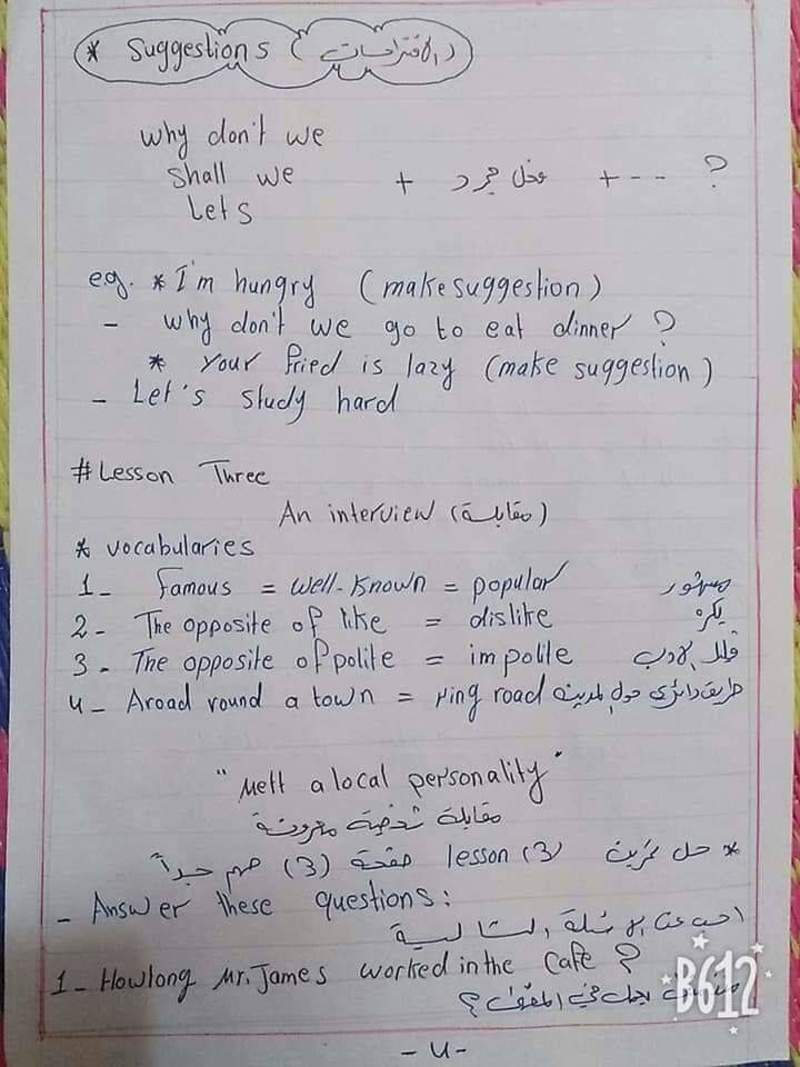 * Suggestions (الاقتراحات)
why don't we
shall we + فعل مجرد + --- ?
Lets
e.g. * I'm hungry (make suggestion)
- why don't we go to eat dinner ?
* Your fried is lazy (make suggestion)
- Let's study hard
# Lesson Three
An interview (مقابلة)
* vocabularies
1- Famous = well-known = popular مشهور
2- The opposite of like = dislike يكره
3- The opposite of polite = impolite قليل الادب
4- Aroad round a town = ring road طريق دائري حول المدينه
"Mett a local personality"
مقابلة شخصية معروفة
* حل تمرين lesson (3) صفحة (3) مهم جداً
- Answer these questions:
اجب عن الاسئلة التالية
1- Howlong Mr. James worked in the Cafe ?
يعمل في المقهى ؟
B612
-4-